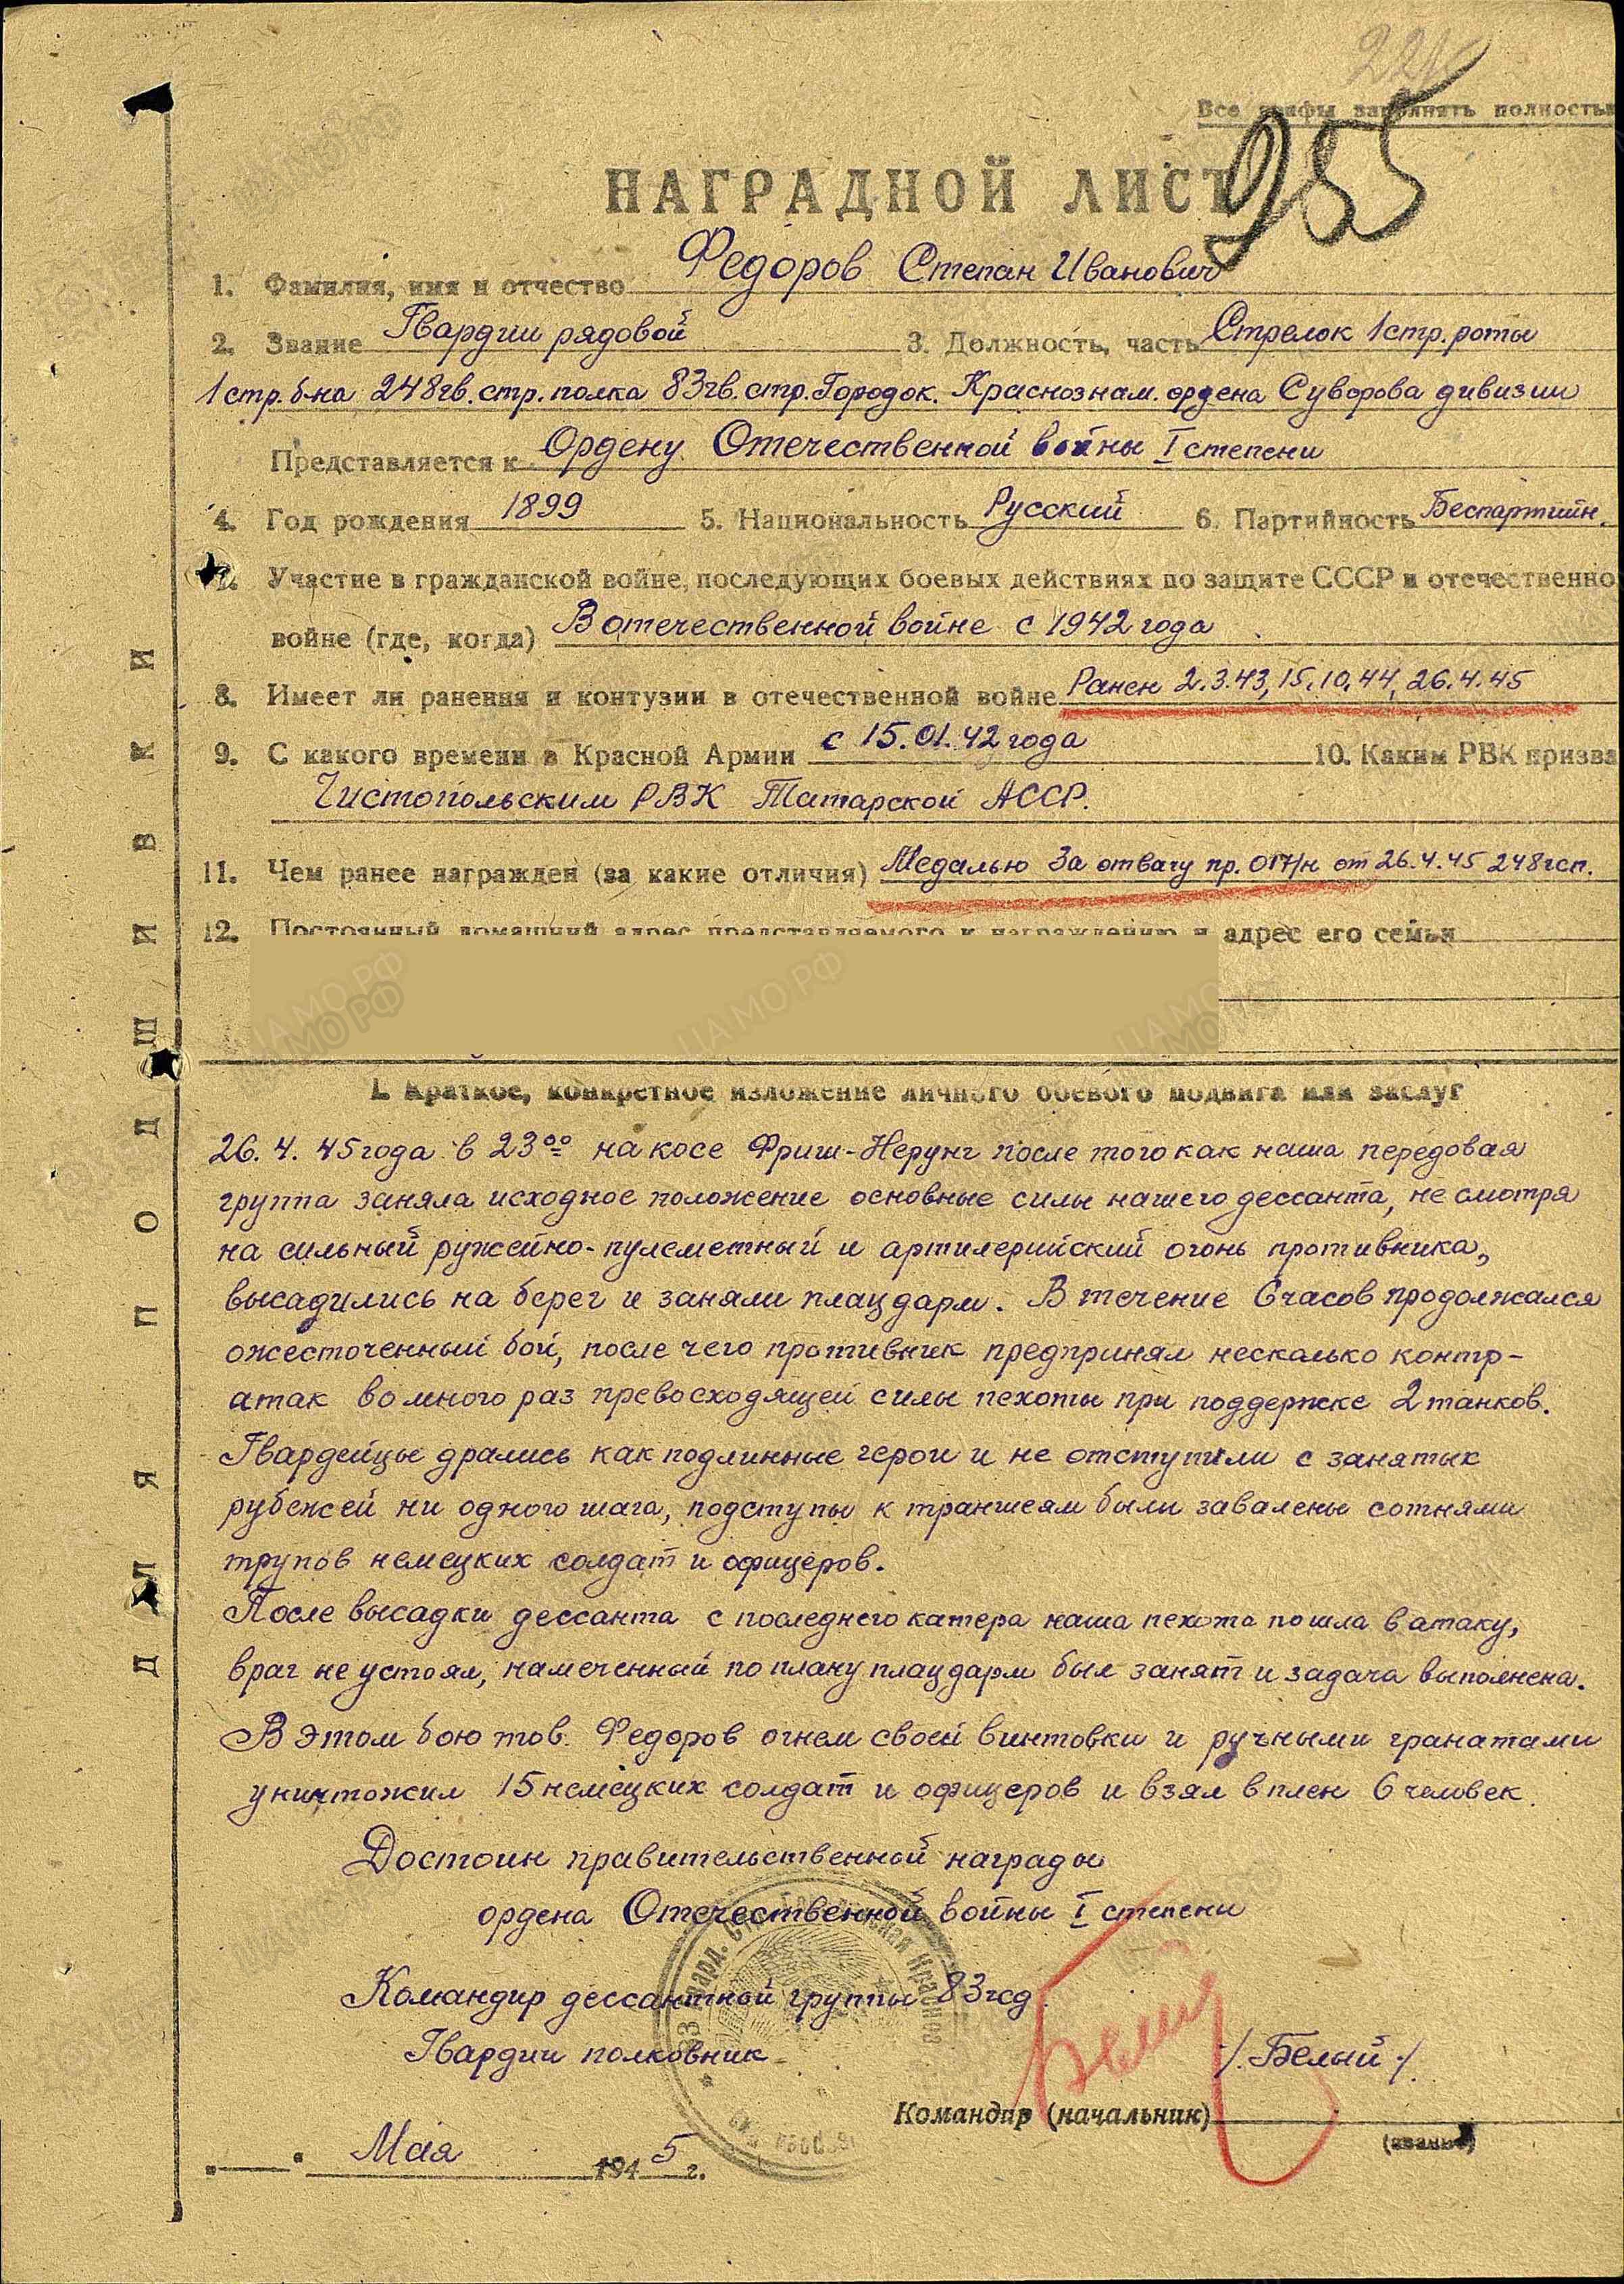 Все графы заполнять полностью
955
НАГРАДНОЙ ЛИСТ
1. Фамилия, имя и отчество Федоров Степан Иванович
2. Звание Гвардии рядовой 3. Должность, часть Стрелок 1 стр. роты
1 стр. б-на 248 гв. стр. полка 83 гв. стр. Городок. Краснознам. ордена Суворова дивизии
Представляется к Ордену Отечественной войны I степени
4. Год рождения 1899 5. Национальность Русский 6. Партийность Беспартийн.
7. Участие в гражданской войне, последующих боевых действиях по защите СССР и отечественно
войне (где, когда) В отечественной войне с 1942 года
8. Имеет ли ранения и контузии в отечественной войне Ранен 2.3.43, 15.10.44, 26.4.45
9. С какого времени в Красной Армии с 15.01.42 года 10. Каким РВК призва
Чистопольским РВК Татарской АССР.
11. Чем ранее награжден (за какие отличия) Медалью За отвагу пр. 017/н от 26.4.45 248 гсп.
12. Постоянный домашний адрес представляемого к награждению и адрес его семьи
I. Краткое, конкретное изложение личного боевого подвига или заслуг
26.4.45 года в 23⁰⁰ на косе Фриш-Нерунг после того как наша передовая
группа заняла исходное положение основные силы нашего дессанта, не смотря
на сильный ружейно-пулеметный и артилерийский огонь противника,
высадились на берег и заняли плацдарм. В течение 6 часов продолжался
ожесточенный бой, после чего противник предпринял несколько контр-
атак во много раз превосходящей силы пехоты при поддержке 2 танков.
Гвардейцы дрались как подлинные герои и не отступили с занятых
рубежей ни одного шага, подступы к траншеям были завалены сотнями
трупов немецких солдат и офицеров.
После высадки дессанта с последнего катера наша пехота пошла в атаку,
враг не устоял, намеченный по плану плацдарм был занят и задача выполнена.
В этом бою тов. Федоров огнем своей винтовки и ручными гранатами
уничтожил 15 немецких солдат и офицеров и взял в плен 6 человек.
Достоин правительственной награды
ордена Отечественной войны I степени
Командир дессантной группы 83 гсд
Гвардии полковник /Белый/
Командир (начальник)
(звание)
"__" Мая 1945 г.
ДЛЯ ПОДШИВКИ